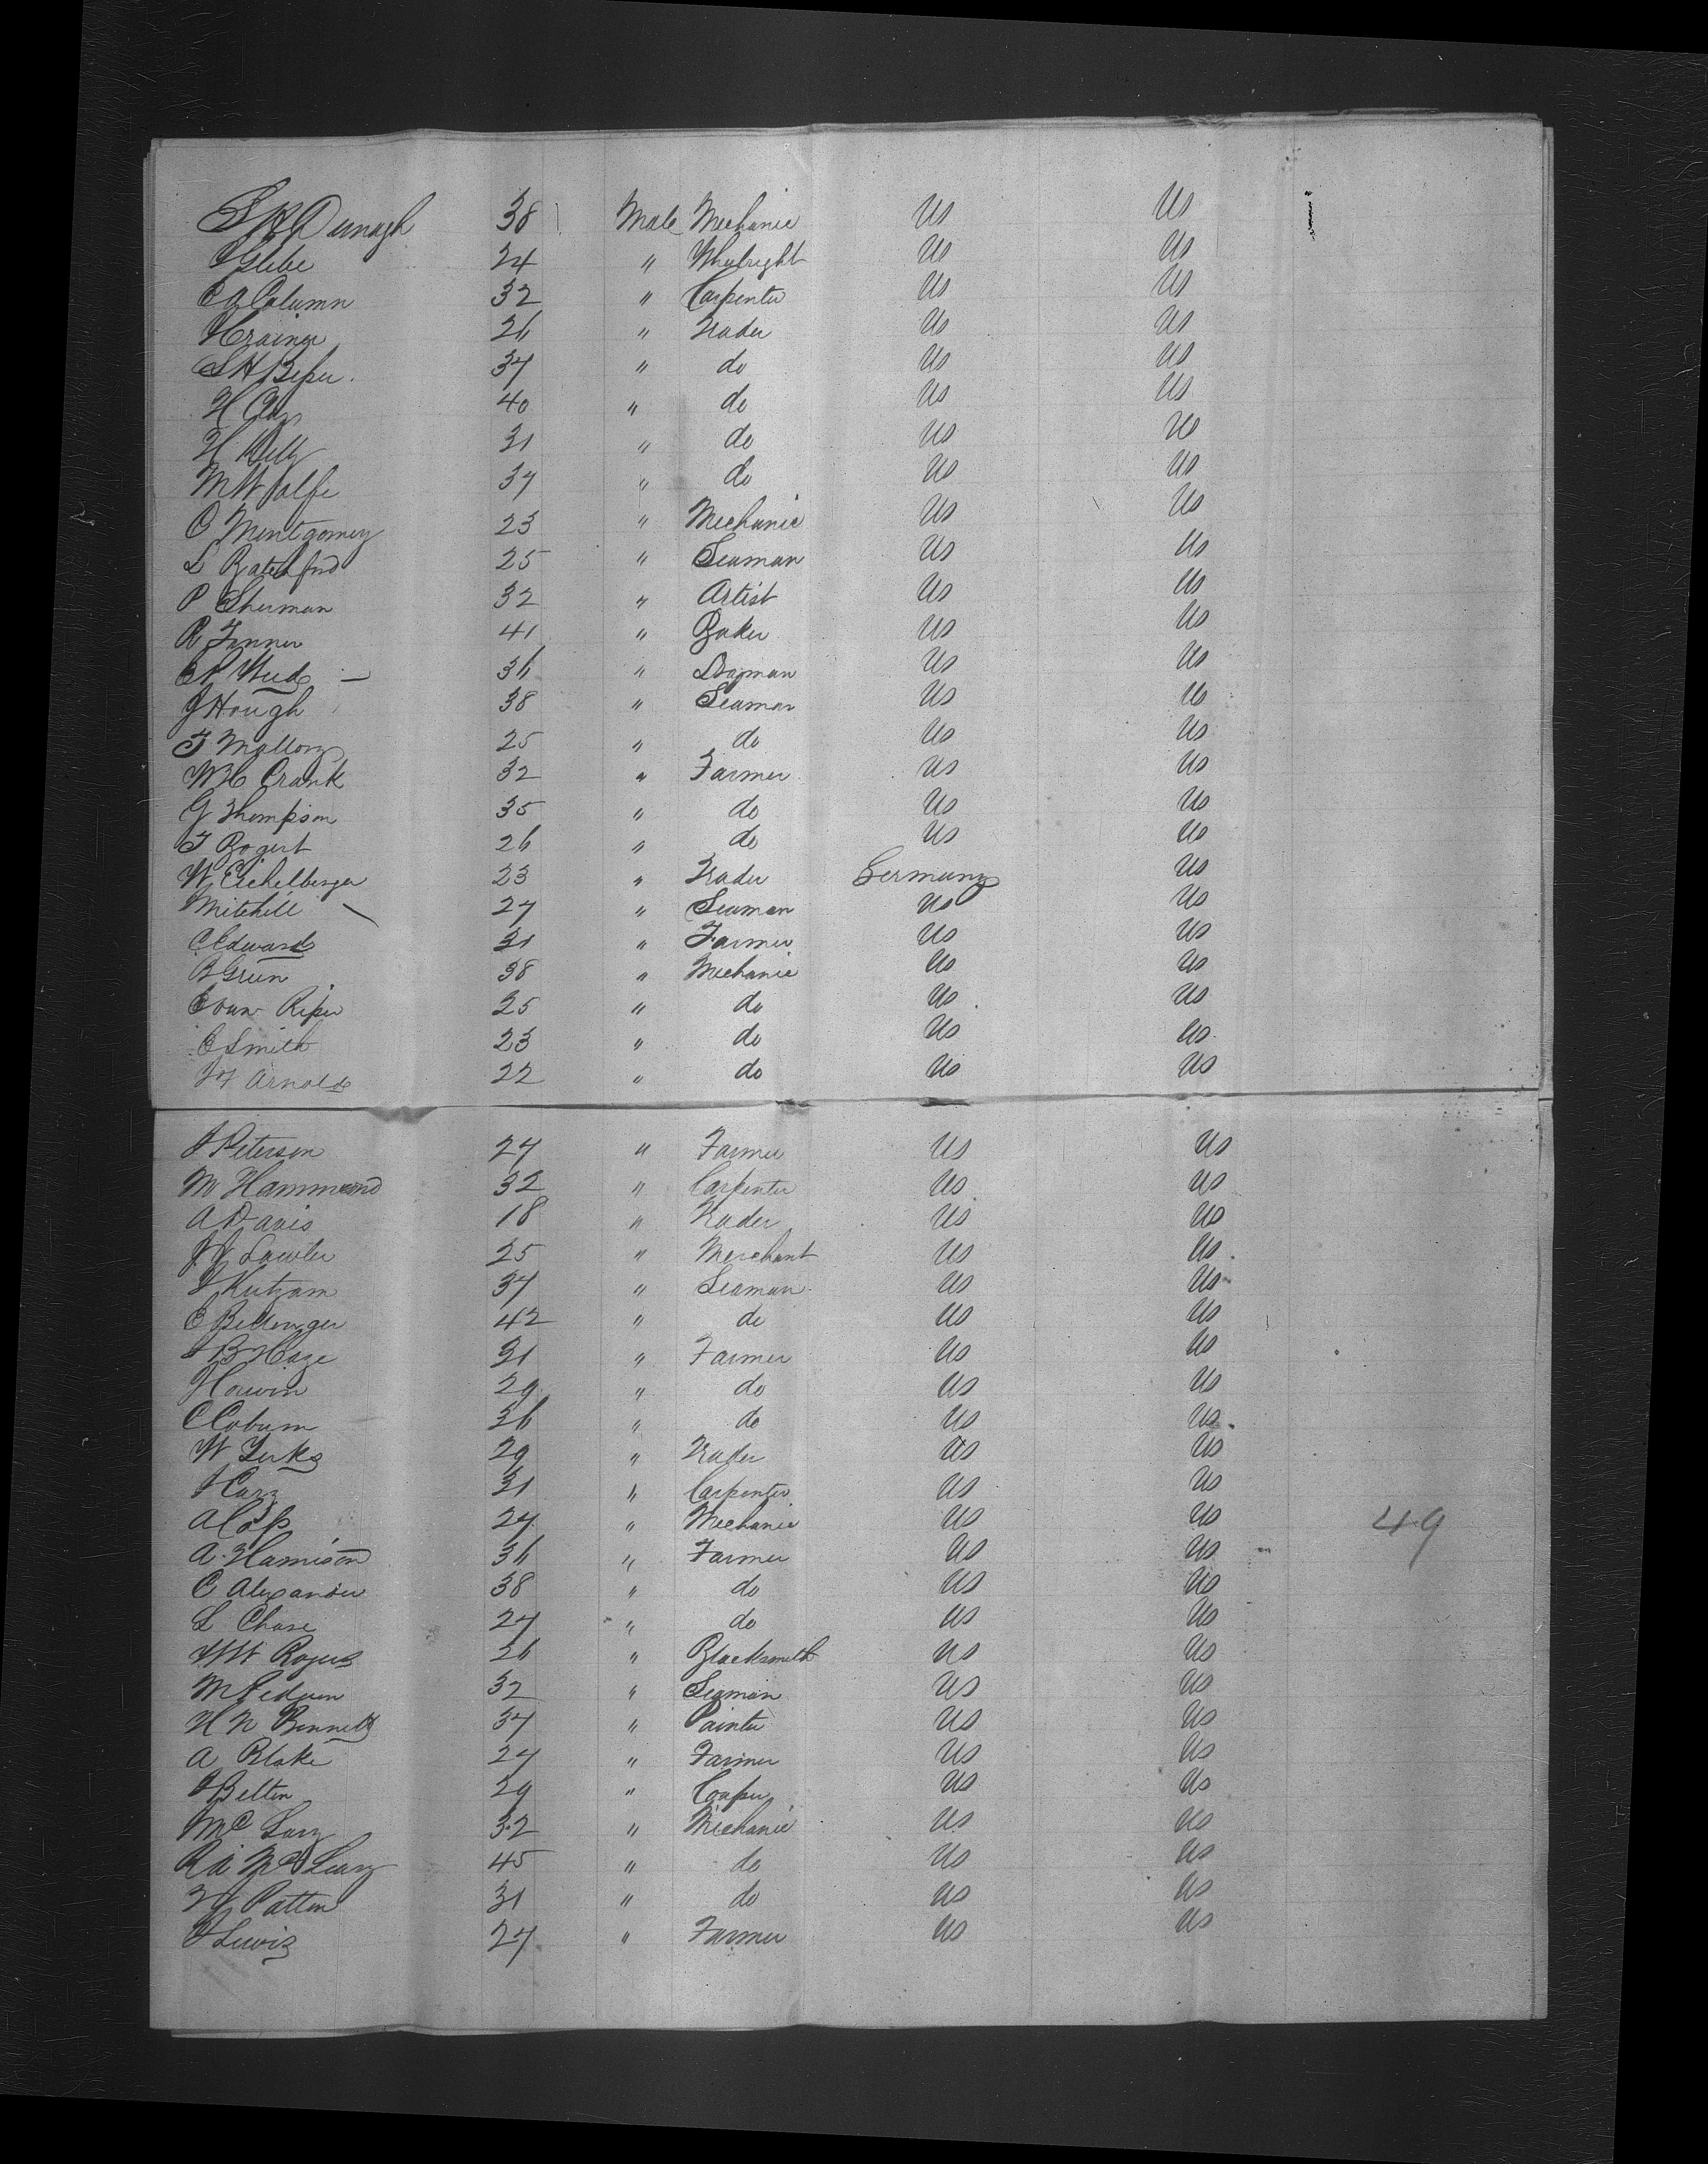 38 Male Mechanic US US
Glebe 24 " Whelright US US
C A Column 32 " Carpenter US US
26 " Trader US US
S H 37 " do US US
H 40 " do US US
H 31 " do US US
M Wolfe 37 " do US US
O Montgomery 23 " Mechanic US US
L Ratchford 25 " Seaman US US
P Sherman 32 " Artist US US
R Fenner 41 " Baker US US
36 " US US
J Hough 38 " Seaman US US
F Mallory 25 " do US US
W H Crank 32 " Farmer US US
G Thompson 35 " do US US
F Bogert 26 " do US US
W Eichelberger 23 " Trader Germany US
Mitchell 27 " Seaman US US
C Edwards 31 " Farmer US US
B Green 38 " Mechanic US US
C van Riper 25 " do US US
C Smith 23 " do US US
Arnold 22 " do US US
J Peterson 27 " Farmer US US
M Hammond 32 " Carpenter US US
A Davis 18 " Trader US US
Lawler 25 " Merchant US US
37 " Seaman US US
C Bellenger 42 " do US US
31 " Farmer US US
29 " do US US
C Coburn 36 " do US US
W 29 " Trader US US
31 " Carpenter US US
A 27 " Mechanic US US 49
A 36 " Farmer US US
C Alexander 38 " do US US
L Chase 27 " do US US
Rogers 26 " Blacksmith US US
32 " Seaman US US
H N Bennett 37 " Painter US US
A Blake 27 " Farmer US US
J Belten 29 " Cooper US US
32 " Mechanic US US
45 " do US US
Patten 31 " do US US
J Lewis 27 " Farmer US US